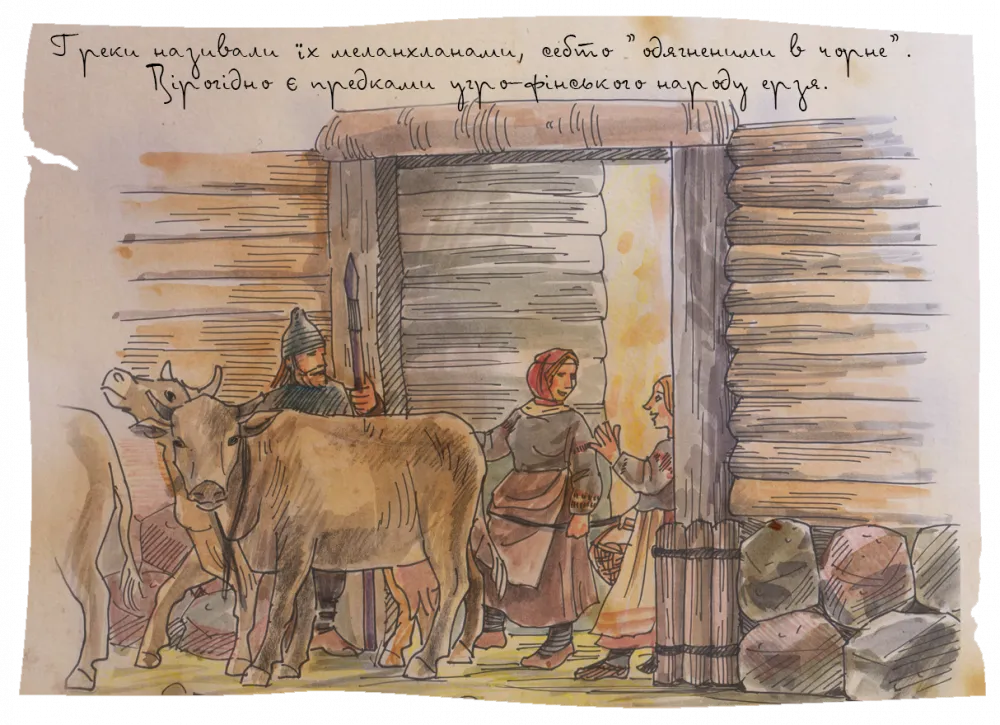 Греки називали їх меланхланами, себто "одягненими в чорне".
Вірогідно є предками угро-фінського народу ерзя.